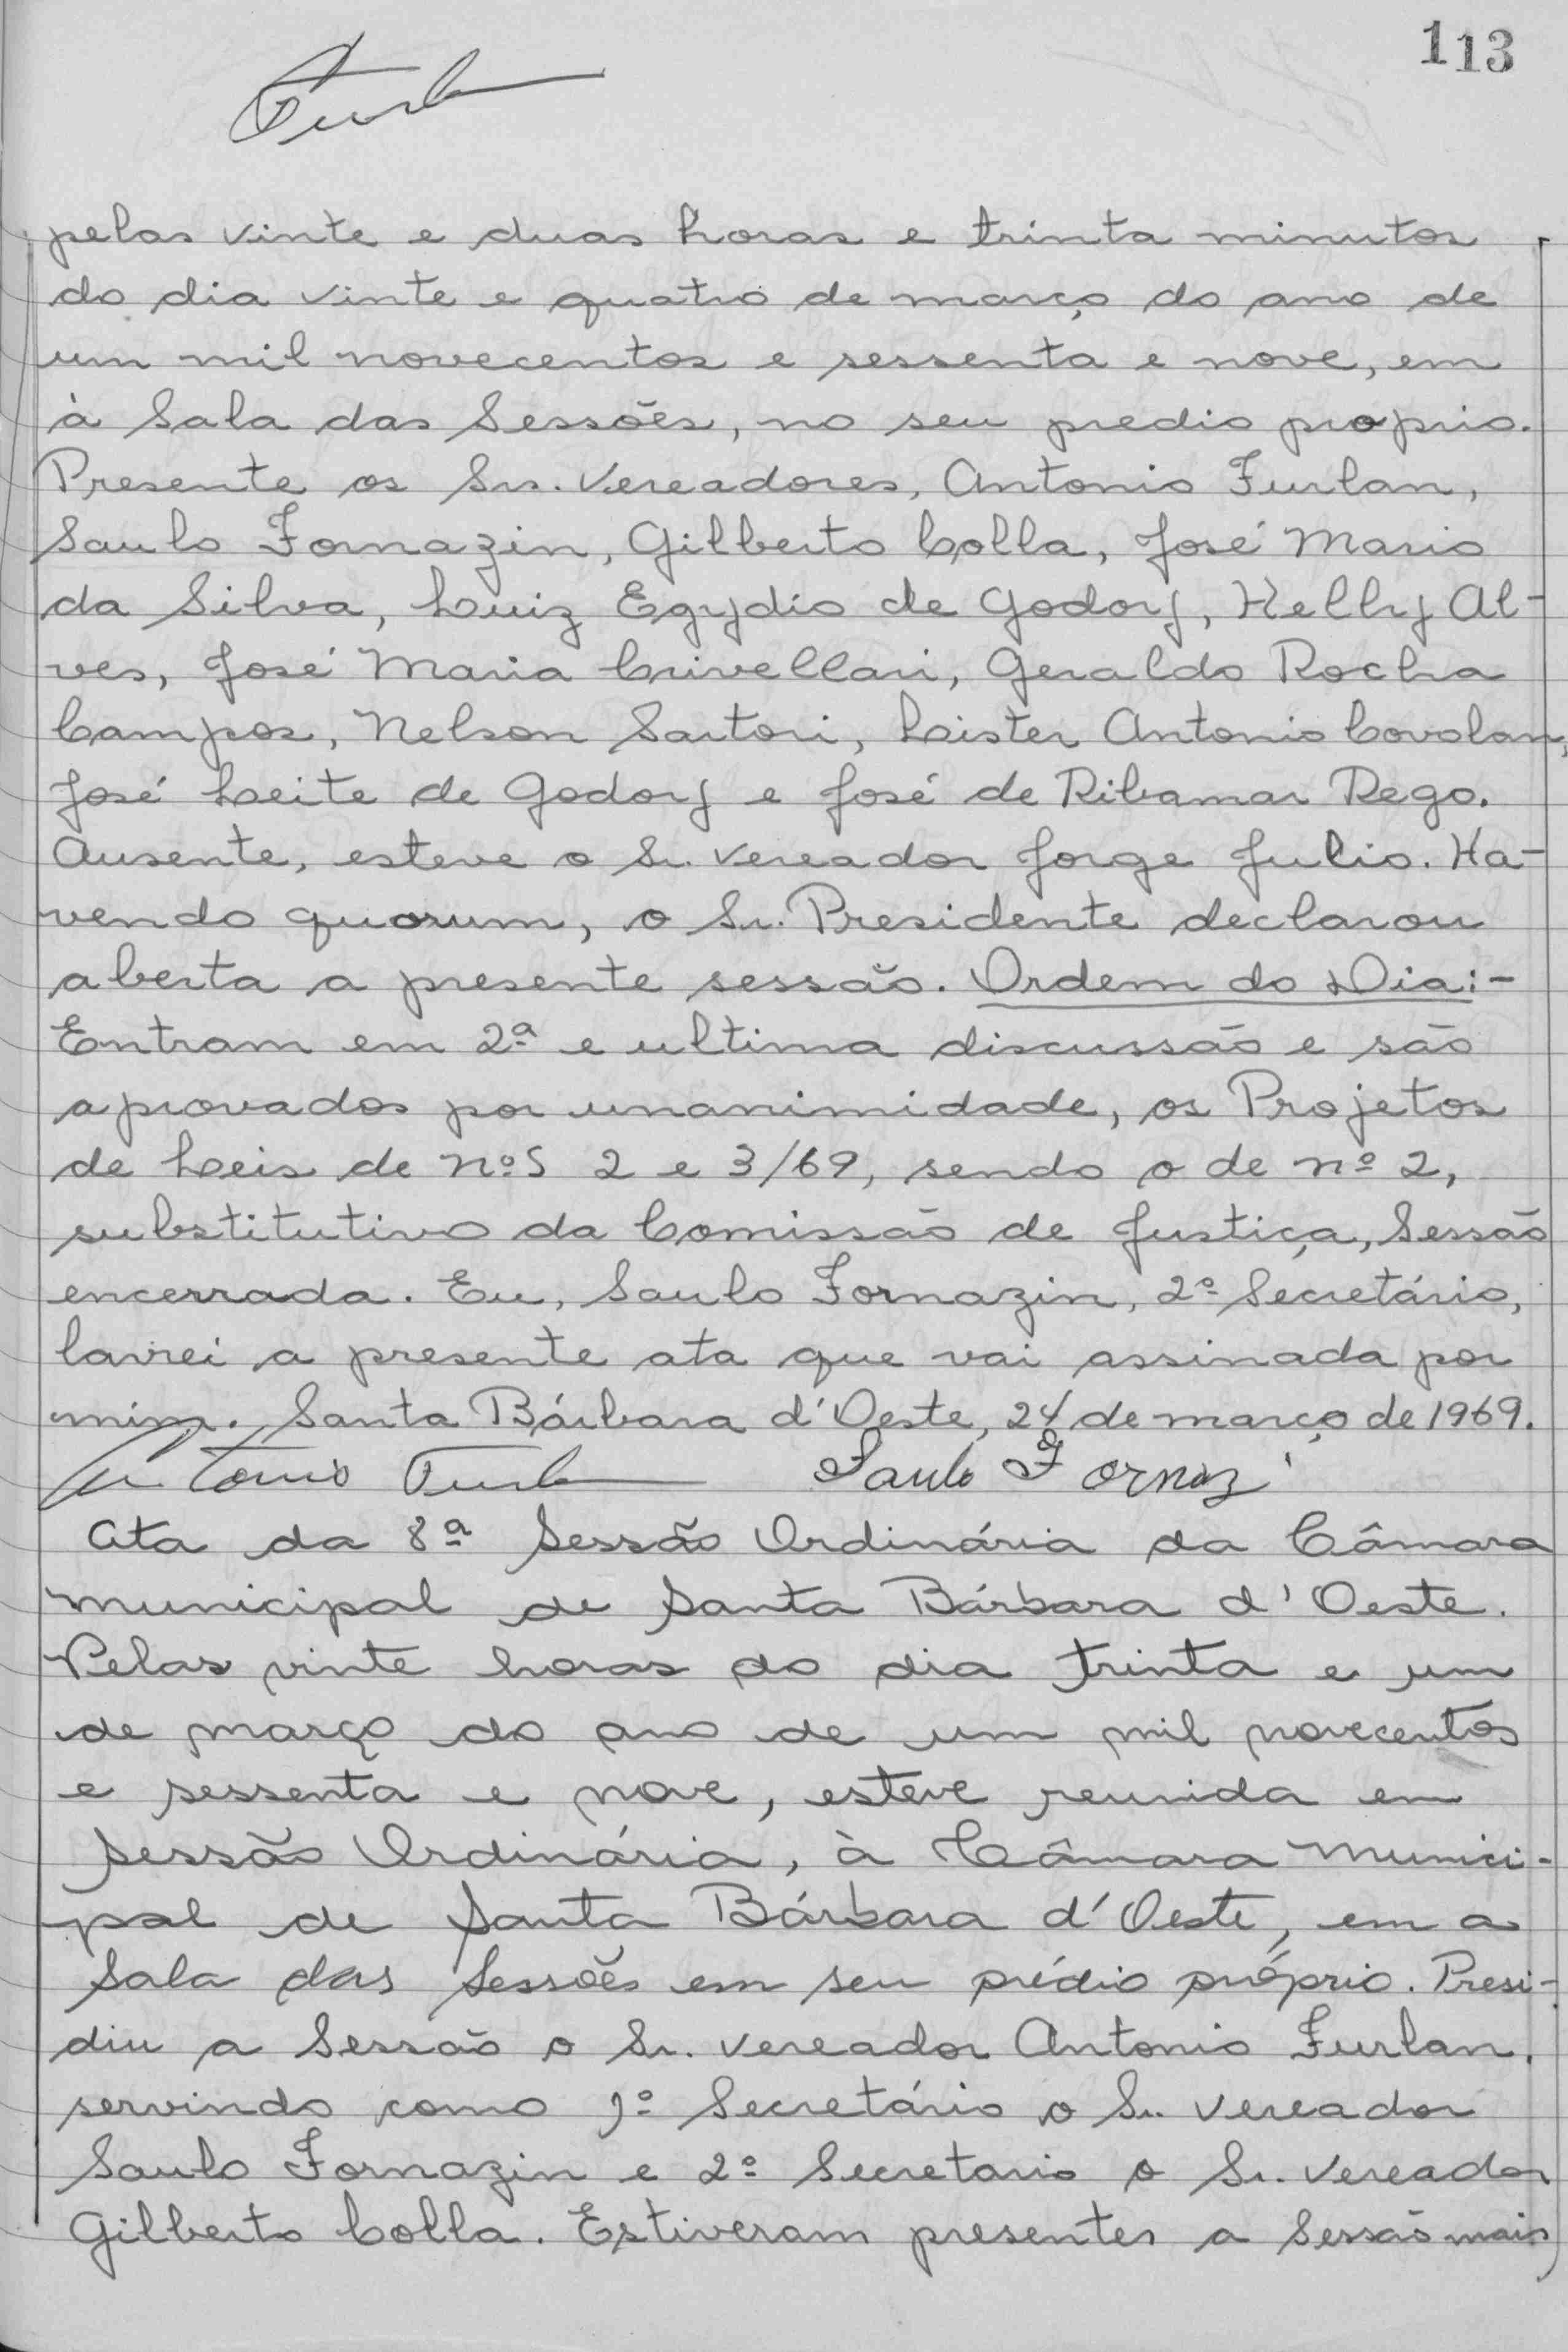 113
Furla
pelas vinte e duas horas e trinta minutos
do dia vinte e quatro de março do ano de
um mil novecentos e sessenta e nove, em
à Sala das Sessões, no seu predio proprio.
Presente os Srs. Vereadores, Antonio Furlan,
Saulo Fornazin, Gilberto Colla, José Mario
da Silva, Luiz Egydio de Godoy, Kelly Al-
ves, José Maria Crivellari, Geraldo Rocha
Campos, Nelson Sartori, Lister Antonio Covolan,
José Leite de Godoy e José de Ribamar Rego.
Ausente, esteve o Sr. Vereador Jorge Julio. Ha-
vendo quorum, o Sr. Presidente declarou
aberta a presente sessão. Ordem do Dia:-
Entram em 2ª e ultima discussão e são
aprovados por unanimidade, os Projetos
de Leis de nºs 2 e 3/69, sendo o de nº 2,
substitutivo da Comissão de Justiça, Sessão
encerrada. Eu, Saulo Fornazin, 2º Secretário,
lavrei a presente ata que vai assinada por
mim. Santa Bárbara d'Oeste, 24 de março de 1969.
Antonio Furla Saulo Fornazi
Ata da 8ª Sessão Ordinária da Câmara
Municipal de Santa Bárbara d'Oeste.
Pelas vinte horas do dia trinta e um
de março do ano de um mil novecentos
e sessenta e nove, esteve reunida em
Sessão Ordinária, à Câmara Munici-
pal de Santa Bárbara d'Oeste, em a
Sala das Sessões em seu prédio próprio. Presi-
diu a Sessão o Sr. Vereador Antonio Furlan,
servindo como 1º Secretário o Sr. Vereador
Saulo Fornazin e 2º Secretario o Sr. Vereador
Gilberto Colla. Estiveram presentes a Sessão mais